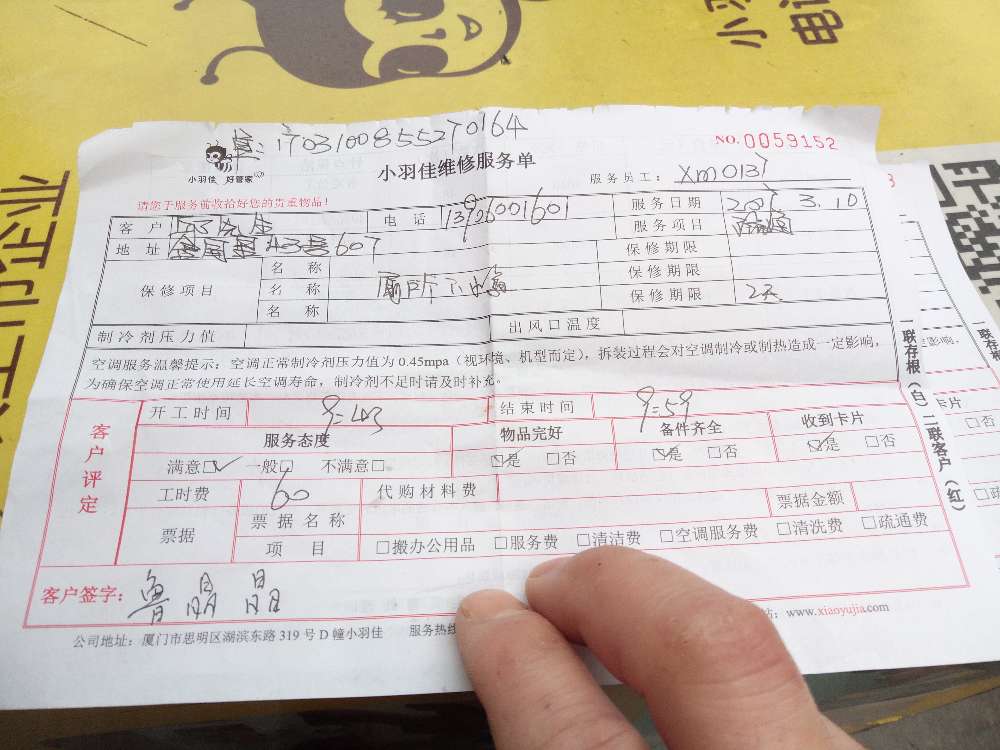 小羽
170310085527​0164
NO.0059152
小羽佳 好管家
小羽佳维修服务单
服务员工：XM0137
请您于服务前收拾好您的贵重物品！
客户 先生 电话 13926001601 服务日期 2017 3.10
服务项目
地址 403号607 保修期限
保修项目 名称 保修期限
名称 厕所下水 保修期限 2天
名称
制冷剂压力值 出风口温度
空调服务温馨提示：空调正常制冷剂压力值为0.45mpa（视环境、机型而定），拆装过程会对空调制冷或制热造成一定影响，
为确保空调正常使用延长空调寿命，制冷剂不足时请及时补充。
客户评定
开工时间 9:43 结束时间 9:59
服务态度 物品完好 备件齐全 收到卡片
满意□✓ 一般□ 不满意□ ☑是 □否 ☑是 □否 ☑是 □否
工时费 60 代购材料费
票据 票据名称 票据金额
项目 □搬办公用品 □服务费 □清洁费 □空调服务费 □清洗费 □疏通费
客户签字：鲁晶晶
公司地址：厦门市思明区湖滨东路319号D幢小羽佳 服务热线 站：www.xiaoyujia.com
一联存根（白）二联客户（红）
联存根
影响，
卡片
□否